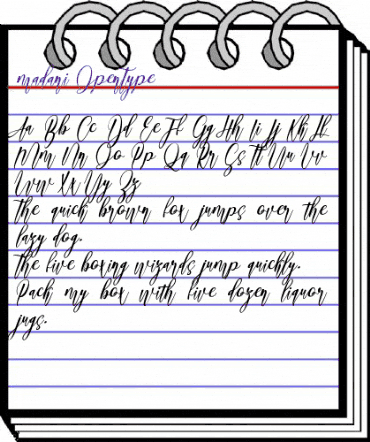 madani Opentype
Aa Bb Cc Dd Ee Ff Gg Hh Ii Jj Kk Ll
Mm Nn Oo Pp Qq Rr Ss Tt Uu Vv
Ww Xx Yy Zz
The quick brown fox jumps over the
lazy dog.
The five boxing wizards jump quickly.
Pack my box with five dozen liquor
jugs.